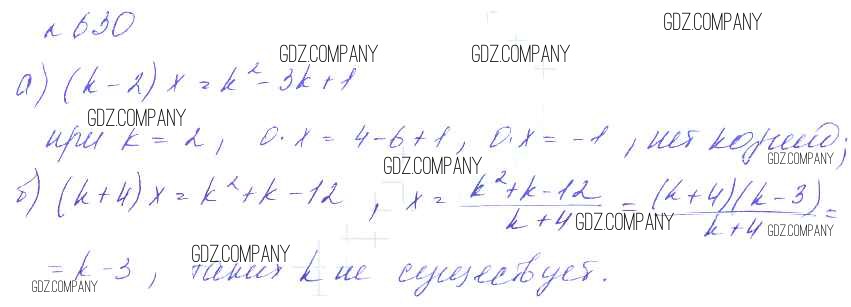 №630
а) (k-2)x = k² - 3k + 1
при k = 2, 0·x = 4-6+1, 0·x = -1, нет корней;
б) (k+4)x = k² + k - 12, x = (k²+k-12)/(k+4) = ((k+4)(k-3))/(k+4) =
= k-3, таких k не существует.
GDZ.COMPANY
GDZ.COMPANY
GDZ.COMPANY
GDZ.COMPANY
GDZ.COMPANY
GDZ.COMPANY
GDZ.COMPANY
GDZ.COMPANY
GDZ.COMPANY
GDZ.COMPANY